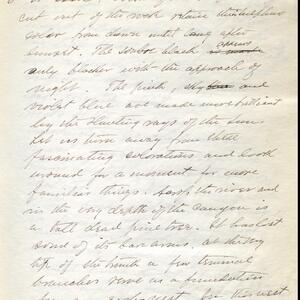 cut out of the rock retain their
color from dawn until long after
sunset. The somber black appears
only blacker with the approach of
night. The pink, sky blue and
violet blue are made more brilliant
by the slanting rays of the sun.
Let us turn away from these
fascinating colorations and look
around for a moment for more
familiar things. the river and
in the very depth of the canyon is
a tall dead pine tree. At
some of its bare arms, at the very
tip of the tenth a few terminal
branches serve as a foundation
for a nest